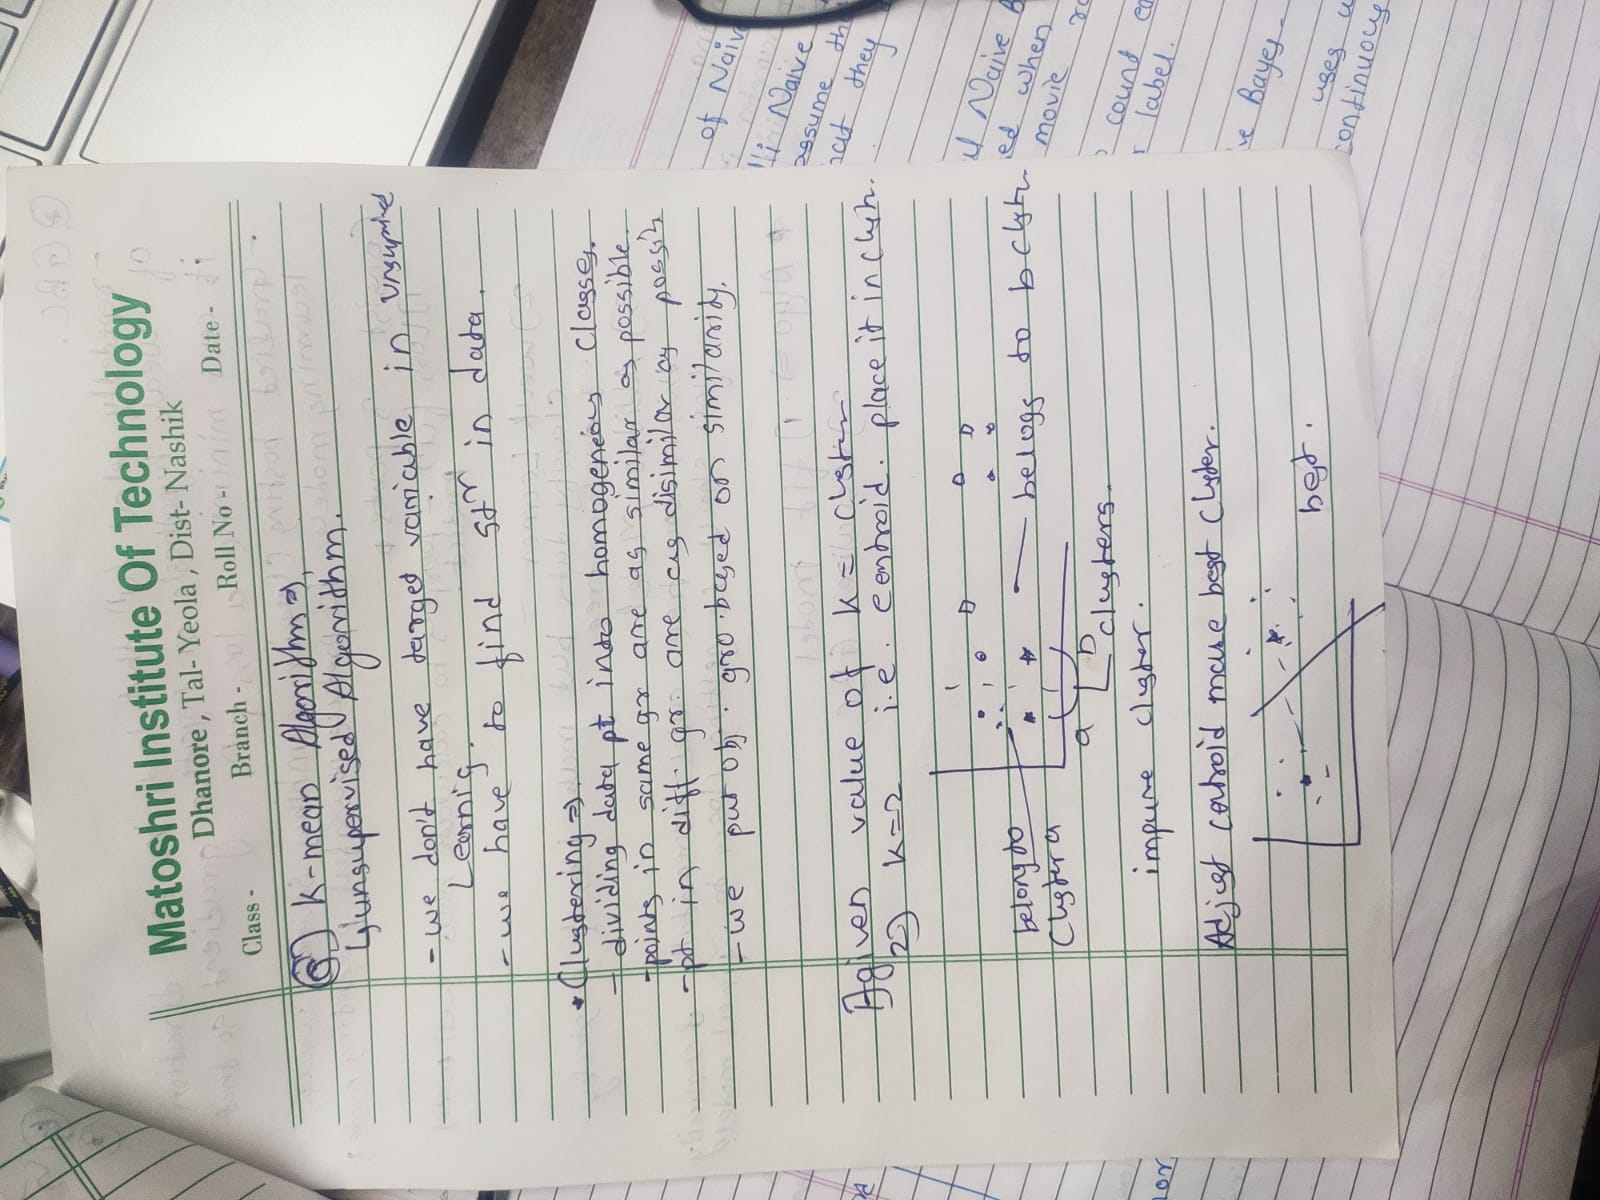 Matoshri Institute Of Technology
Dhanore, Tal- Yeola, Dist- Nashik
Class - Branch - Roll No - Date -
K-mean Algorithm ⇒
↳ unsupervised Algorithm.
- we don't have target variable in
Learnig.
- we have to find str in data.
* Clustering ⇒
- dividing data pt into homogeneous classes.
- points in same gr are as similar as possible.
- pt in diff. gr. are as disimilar as possib
- we put obj. gro. based on similarity.
A given value of k = cluster
k=2 i.e. centroid. place it in
belogs to b
belong to
Cluster a
a b
clusters.
impure cluster.
Adjest make best Cluster.
best.
of Naive
Naive
assume
that they
Naive B
ed when
movie
count
label.
Bayes -
uses
continuous